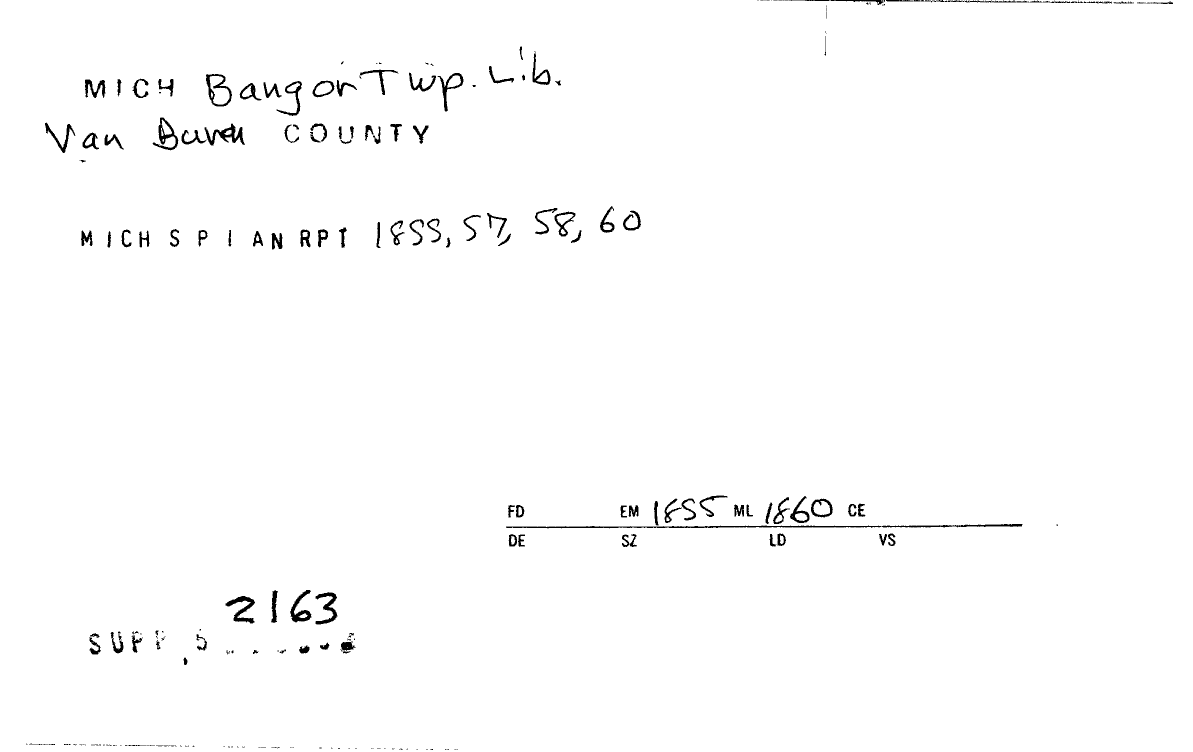 MICH Bangor Twp. Lib.
Van Buren COUNTY
MICH S P I AN RPT 1855, 57, 58, 60
FD EM 1855 ML 1860 CE
DE SZ LD VS
2163
SUPP, 5